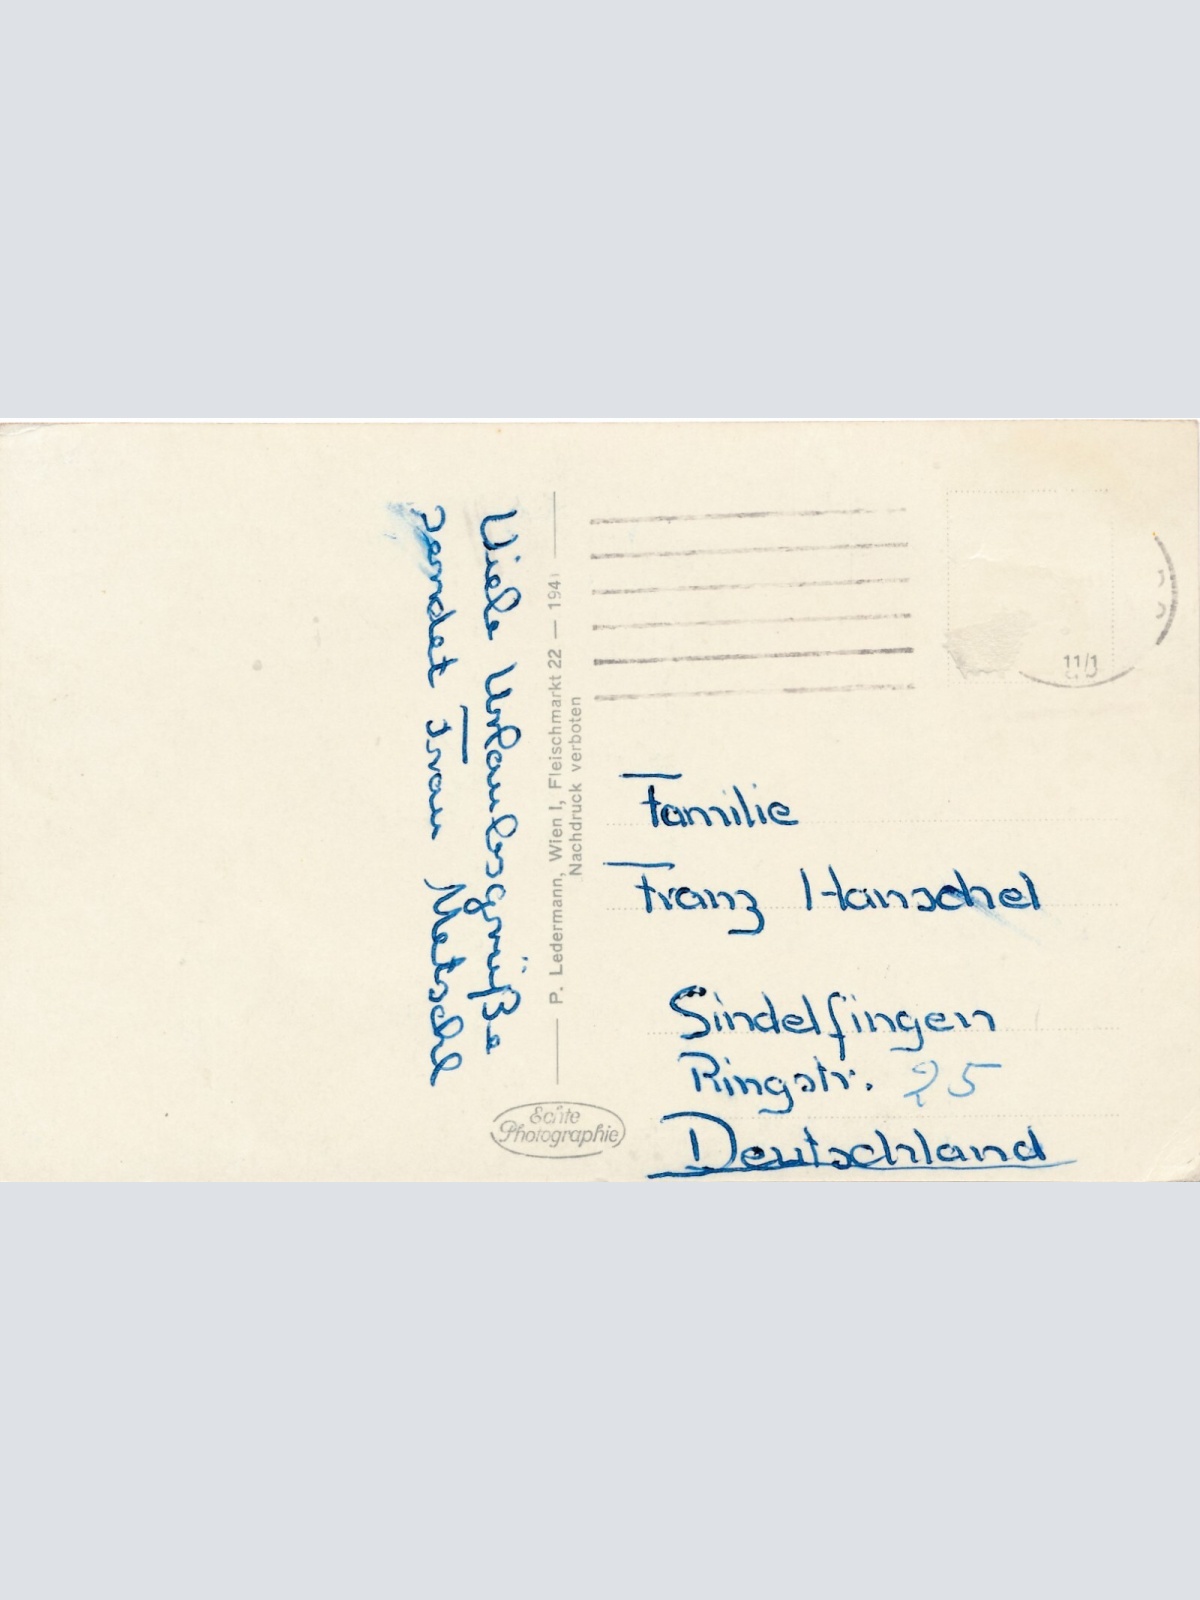 Viele Urlaubsgrüße
sendet Frau Metschl
P. Ledermann, Wien I, Fleischmarkt 22 — 1941
Nachdruck verboten
Echte
Photographie
11/1
Familie
Franz Hanschel
Sindelfingen
Ringstr. 25
Deutschland